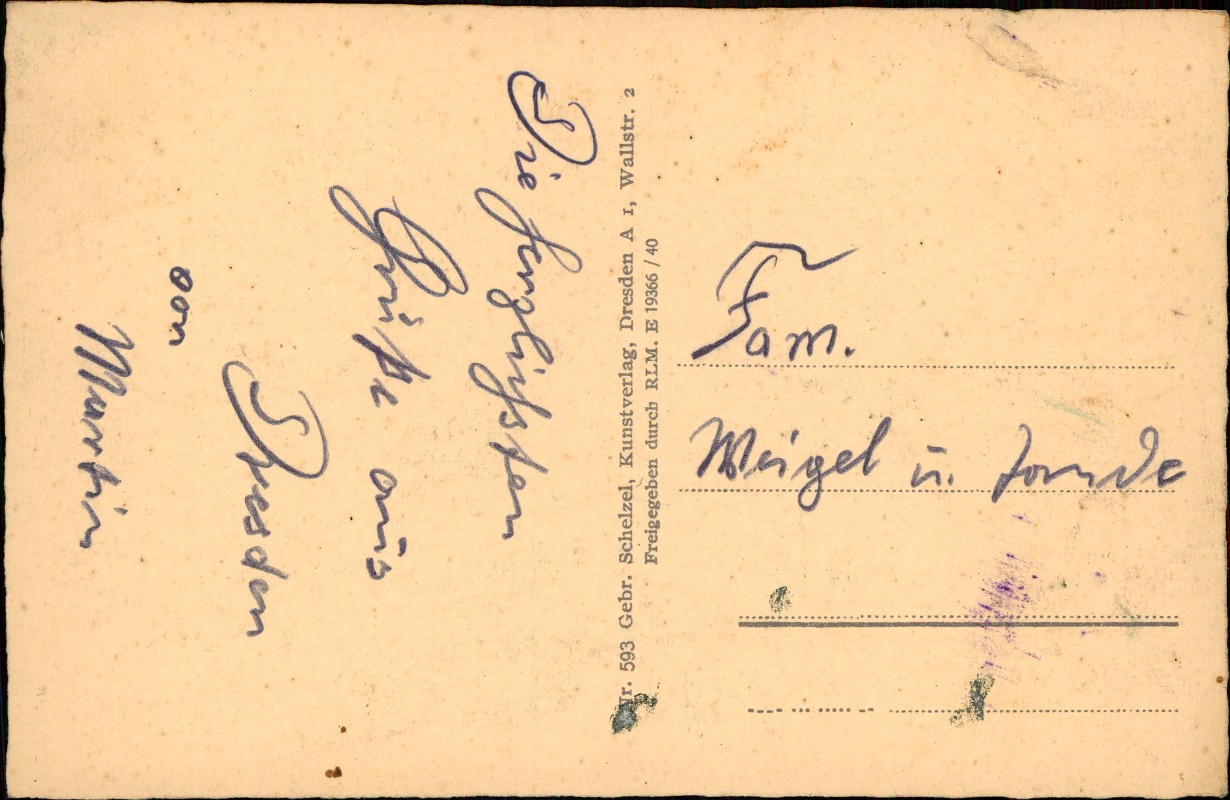 Die herzlichsten
Grüße aus
Dresden
von
Martin
Nr. 593 Gebr. Schelzel, Kunstverlag, Dresden A 1, Wallstr. 2
Freigegeben durch RLM. E 19366 / 40
Fam.
Weigel u.